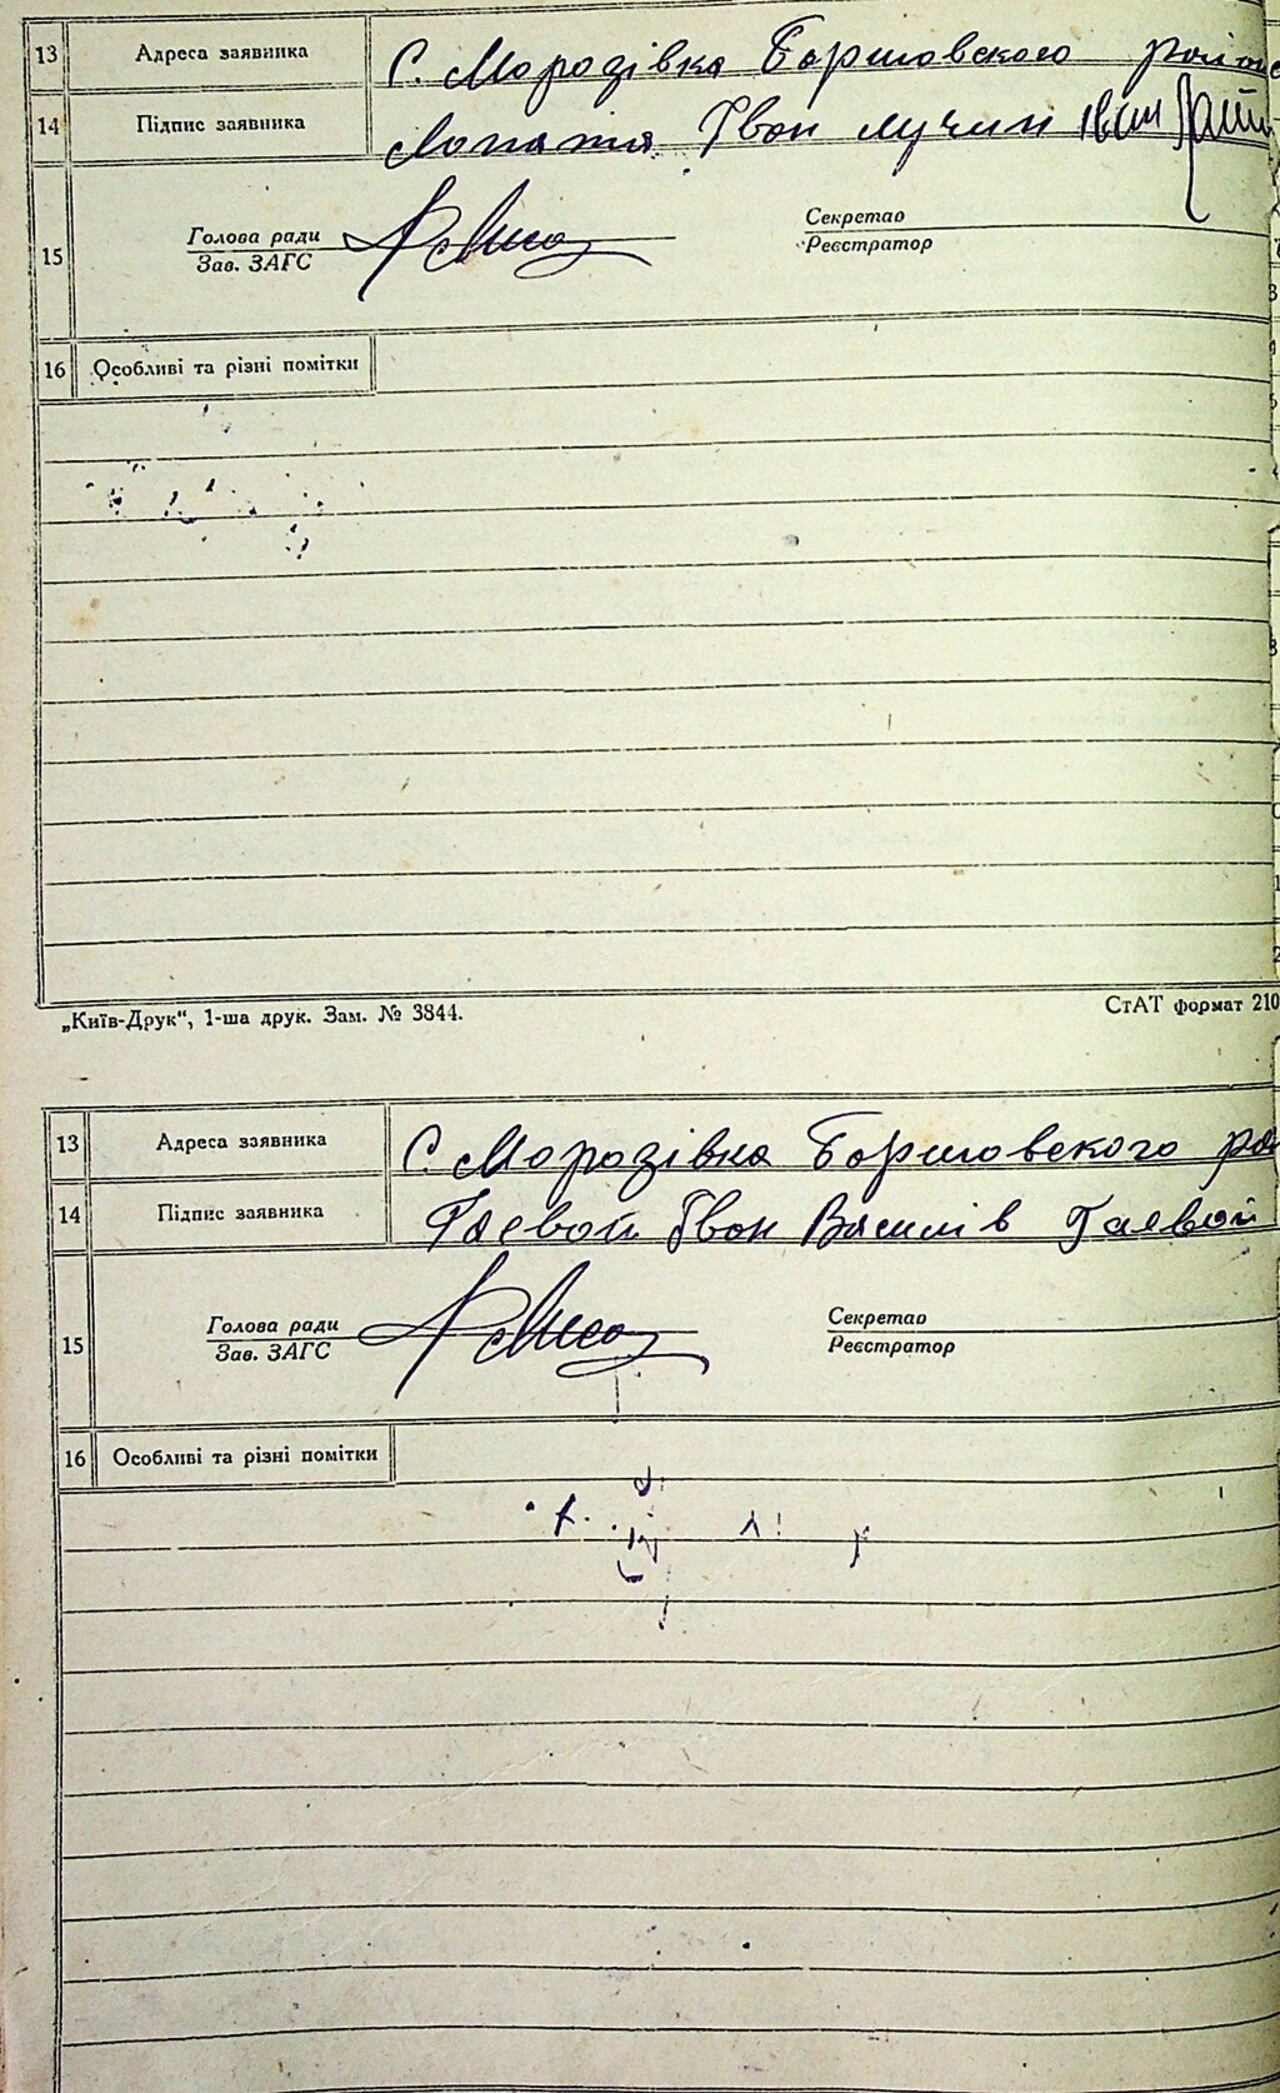 13 Адреса заявника С. Морозівка Баришовского
14 Підпис заявника Лопата Іван Іван
15 Голова ради Секретар
Зав. ЗАГС Реєстратор
16 Особливі та різні помітки
„Київ-Друк“, 1-ша друк. Зам. № 3844. СтАТ формат 210
13 Адреса заявника С. Морозівка Баришовского
14 Підпис заявника Гаевой Іван Василів Гаевой
15 Голова ради Секретар
Зав. ЗАГС Реєстратор
16 Особливі та різні помітки